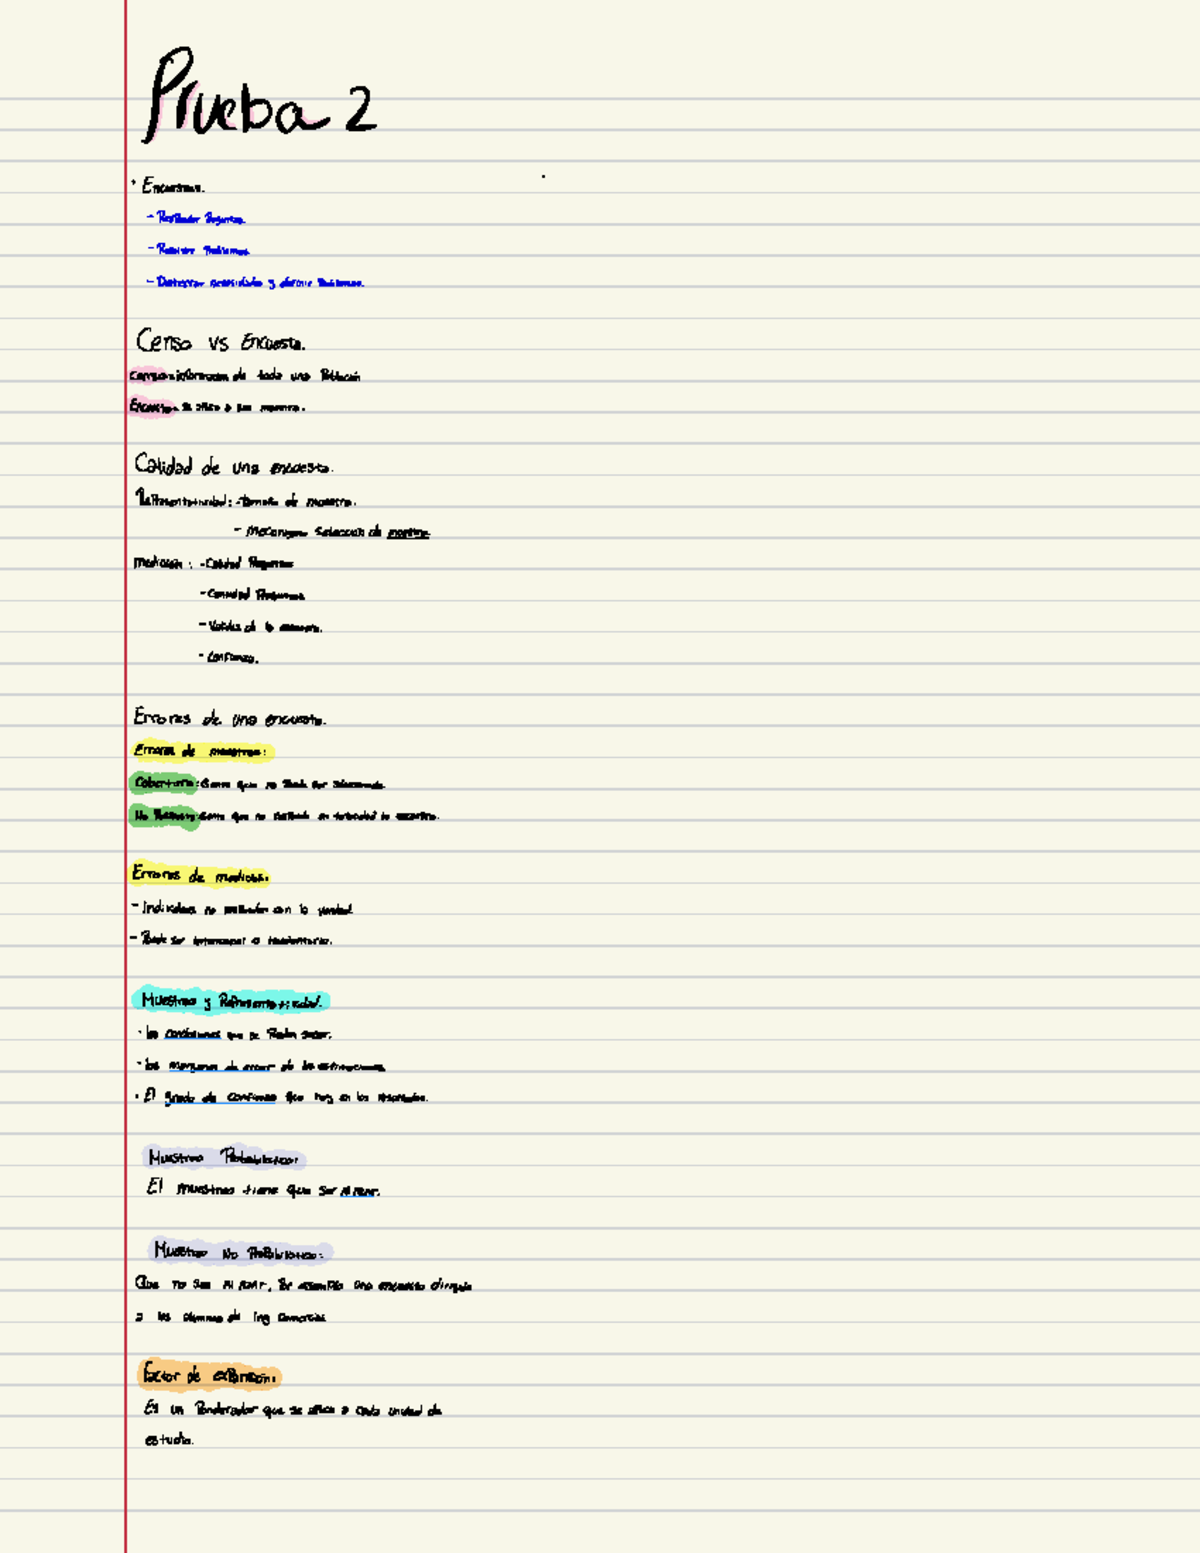 Prueba 2
• Encuestas.
- Responder Preguntas.
- Resolver Problemas
- Detectar necesidades y definir Problemas.
Censo vs Encuesta.
Censo: información de toda una Población
Encuesta: Se aplica a una muestra.
Calidad de una encuesta.
Representatividad: -Tamaño de muestra.
- Mecanismo Selección de muestra
medición: -Calidad Preguntas
-Cantidad Preguntas
-Validez de la
-Confianza.
Errores de una encuesta.
Errores de muestreo:
Cobertura: Gente que no Puede ser seleccionada.
No Respuesta: Gente que no responde en totalidad la encuesta.
Errores de medición:
- Indicadores no con la verdad
- Puede ser intencional o involuntario.
Muestreo y Representatividad.
• las conclusiones que se Pueden sacar.
• los margenes de error de las estimaciones.
• El grado de confianza que hay en los resultados.
Muestreo Probabilístico:
El muestreo tiene que ser Al Azar.
Muestreo No Probabilístico:
Que no sea Al Azar, Por ejemplo una encuesta dirigida
a los alumnos de Ing Comercial
Factor de expansión:
Es un Ponderador que se aplica a cada unidad de
estudio.